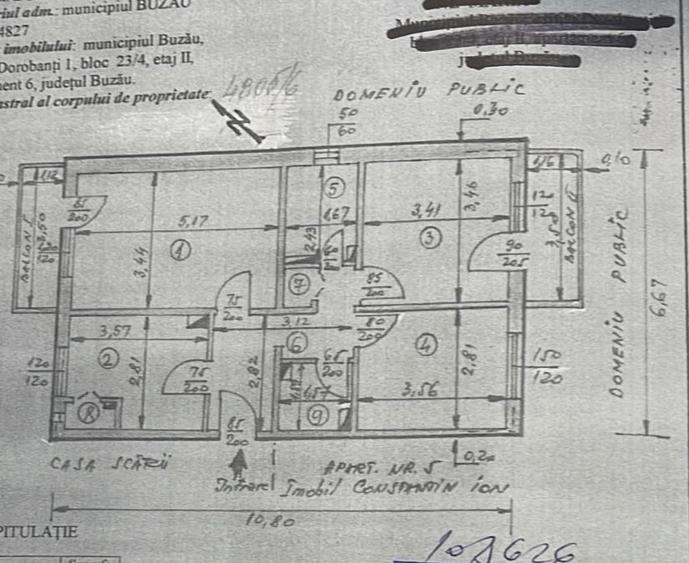 adm.: municipiul BUZĂU
4827
imobilului: municipiul Buzău,
Dorobanți 1, bloc 23/4, etaj II,
6, județul Buzău.
al corpului de proprietate 4805/6
DOMENIU PUBLIC
0,30
50
60
1,12
85
200
5,17
5
1,67
3,41
3,46
1,16
0,10
BALCON
3,50
120
120
3,44
1
2,43
3
120
120
90
205
3,50
BALCON
DOMENIU PUBLIC
6,67
7
85
200
75
200
3,12
80
200
3,57
2
2,81
6
4
2,81
120
120
75
200
2,82
65
200
1,57
3,56
150
120
8
9
85
200
CASA SCĂRII
APART. NR. 5
0,20
Imobil CONSTANTIN ION
10,80